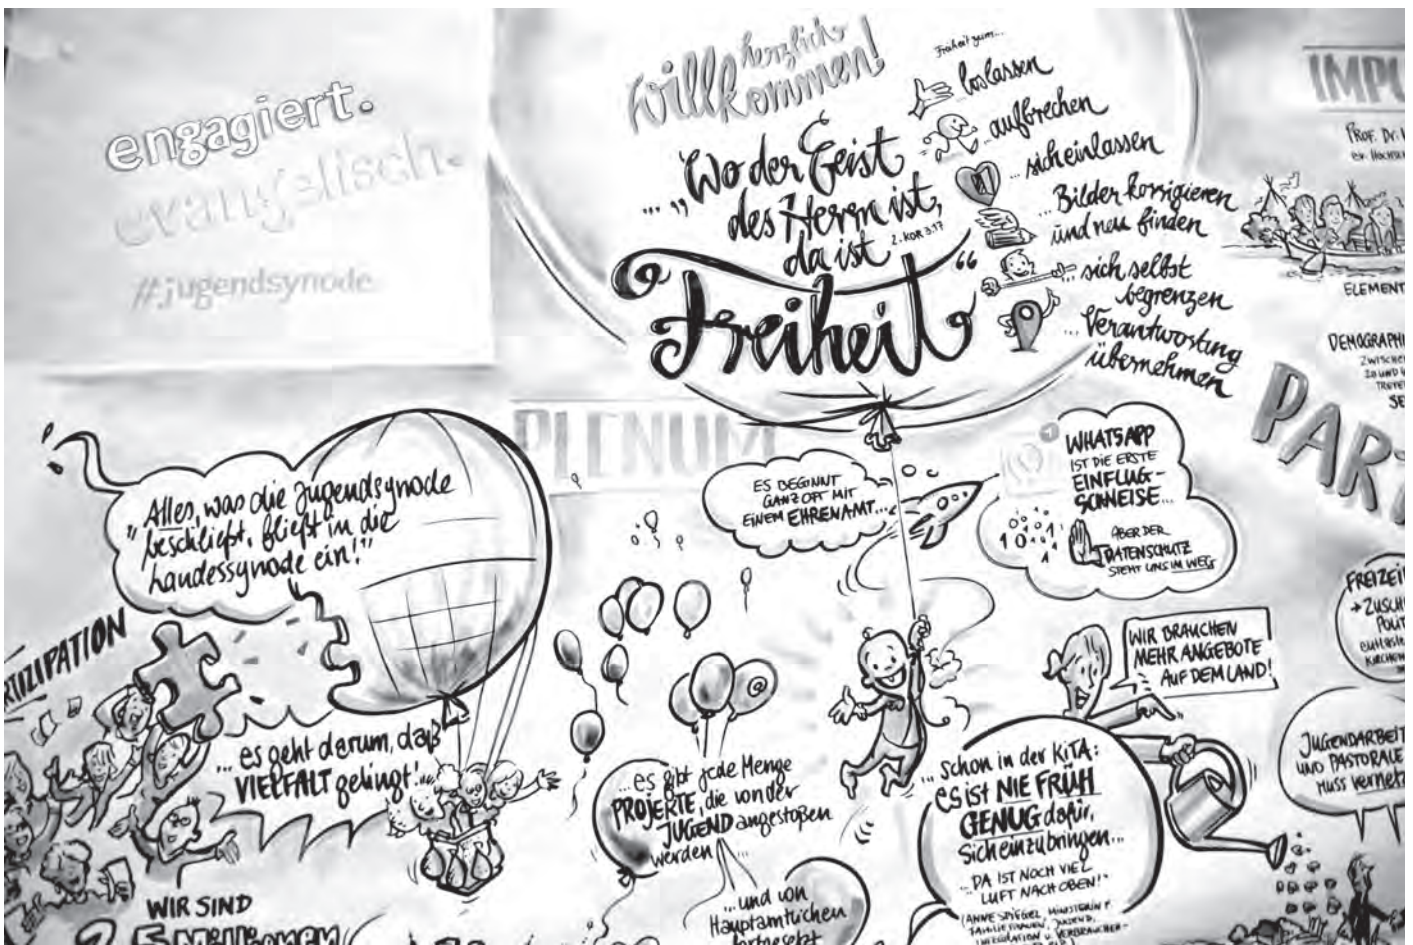 engagiert.
evangelisch.
#jugendsynode
herzlich
willkommen!
... „Wo der Geist
des Herrn ist,
da ist
2. KOR 3.17
Freiheit“
Freiheit zum...
... loslassen
... aufbrechen
... sich einlassen
... Bilder korrigieren
und neu finden
... sich selbst
begrenzen
... Verantwortung
übernehmen
PROF. Dr.
ELEMENT
ZWISCHE
PLENUM
„Alles, was die Jugendsynode
beschließt, fließt in die
Landessynode ein!“
... es geht darum, daß
VIELFALT gelingt!...
WIR SIND
ES BEGINNT
GANZ OFT MIT
EINEM EHRENAMT...
WHATSAPP
IST DIE ERSTE
EINFLUG-
SCHNEISE...
ABER DER
DATENSCHUTZ
STEHT UNS IM WEG
WIR BRAUCHEN
MEHR ANGEBOTE
AUF DEM LAND!
... es gibt jede Menge
PROJEKTE, die von der
JUGEND angestoßen
werden ...
@
...und von
Hauptamtlichen
fortgesetzt
... schon in der KITA:
es ist NIE FRÜH
GENUG dafür,
sich einzubringen...
„DA IST NOCH VIEL
LUFT NACH OBEN!“
(ANNE SPIEGEL, MINISTERIN F.
FAMILIE, FRAUEN, JUGEND,
INTEGRATION U. VERBRAUCHER-
JUGENDARBEIT
UND PASTORALE
MUSS